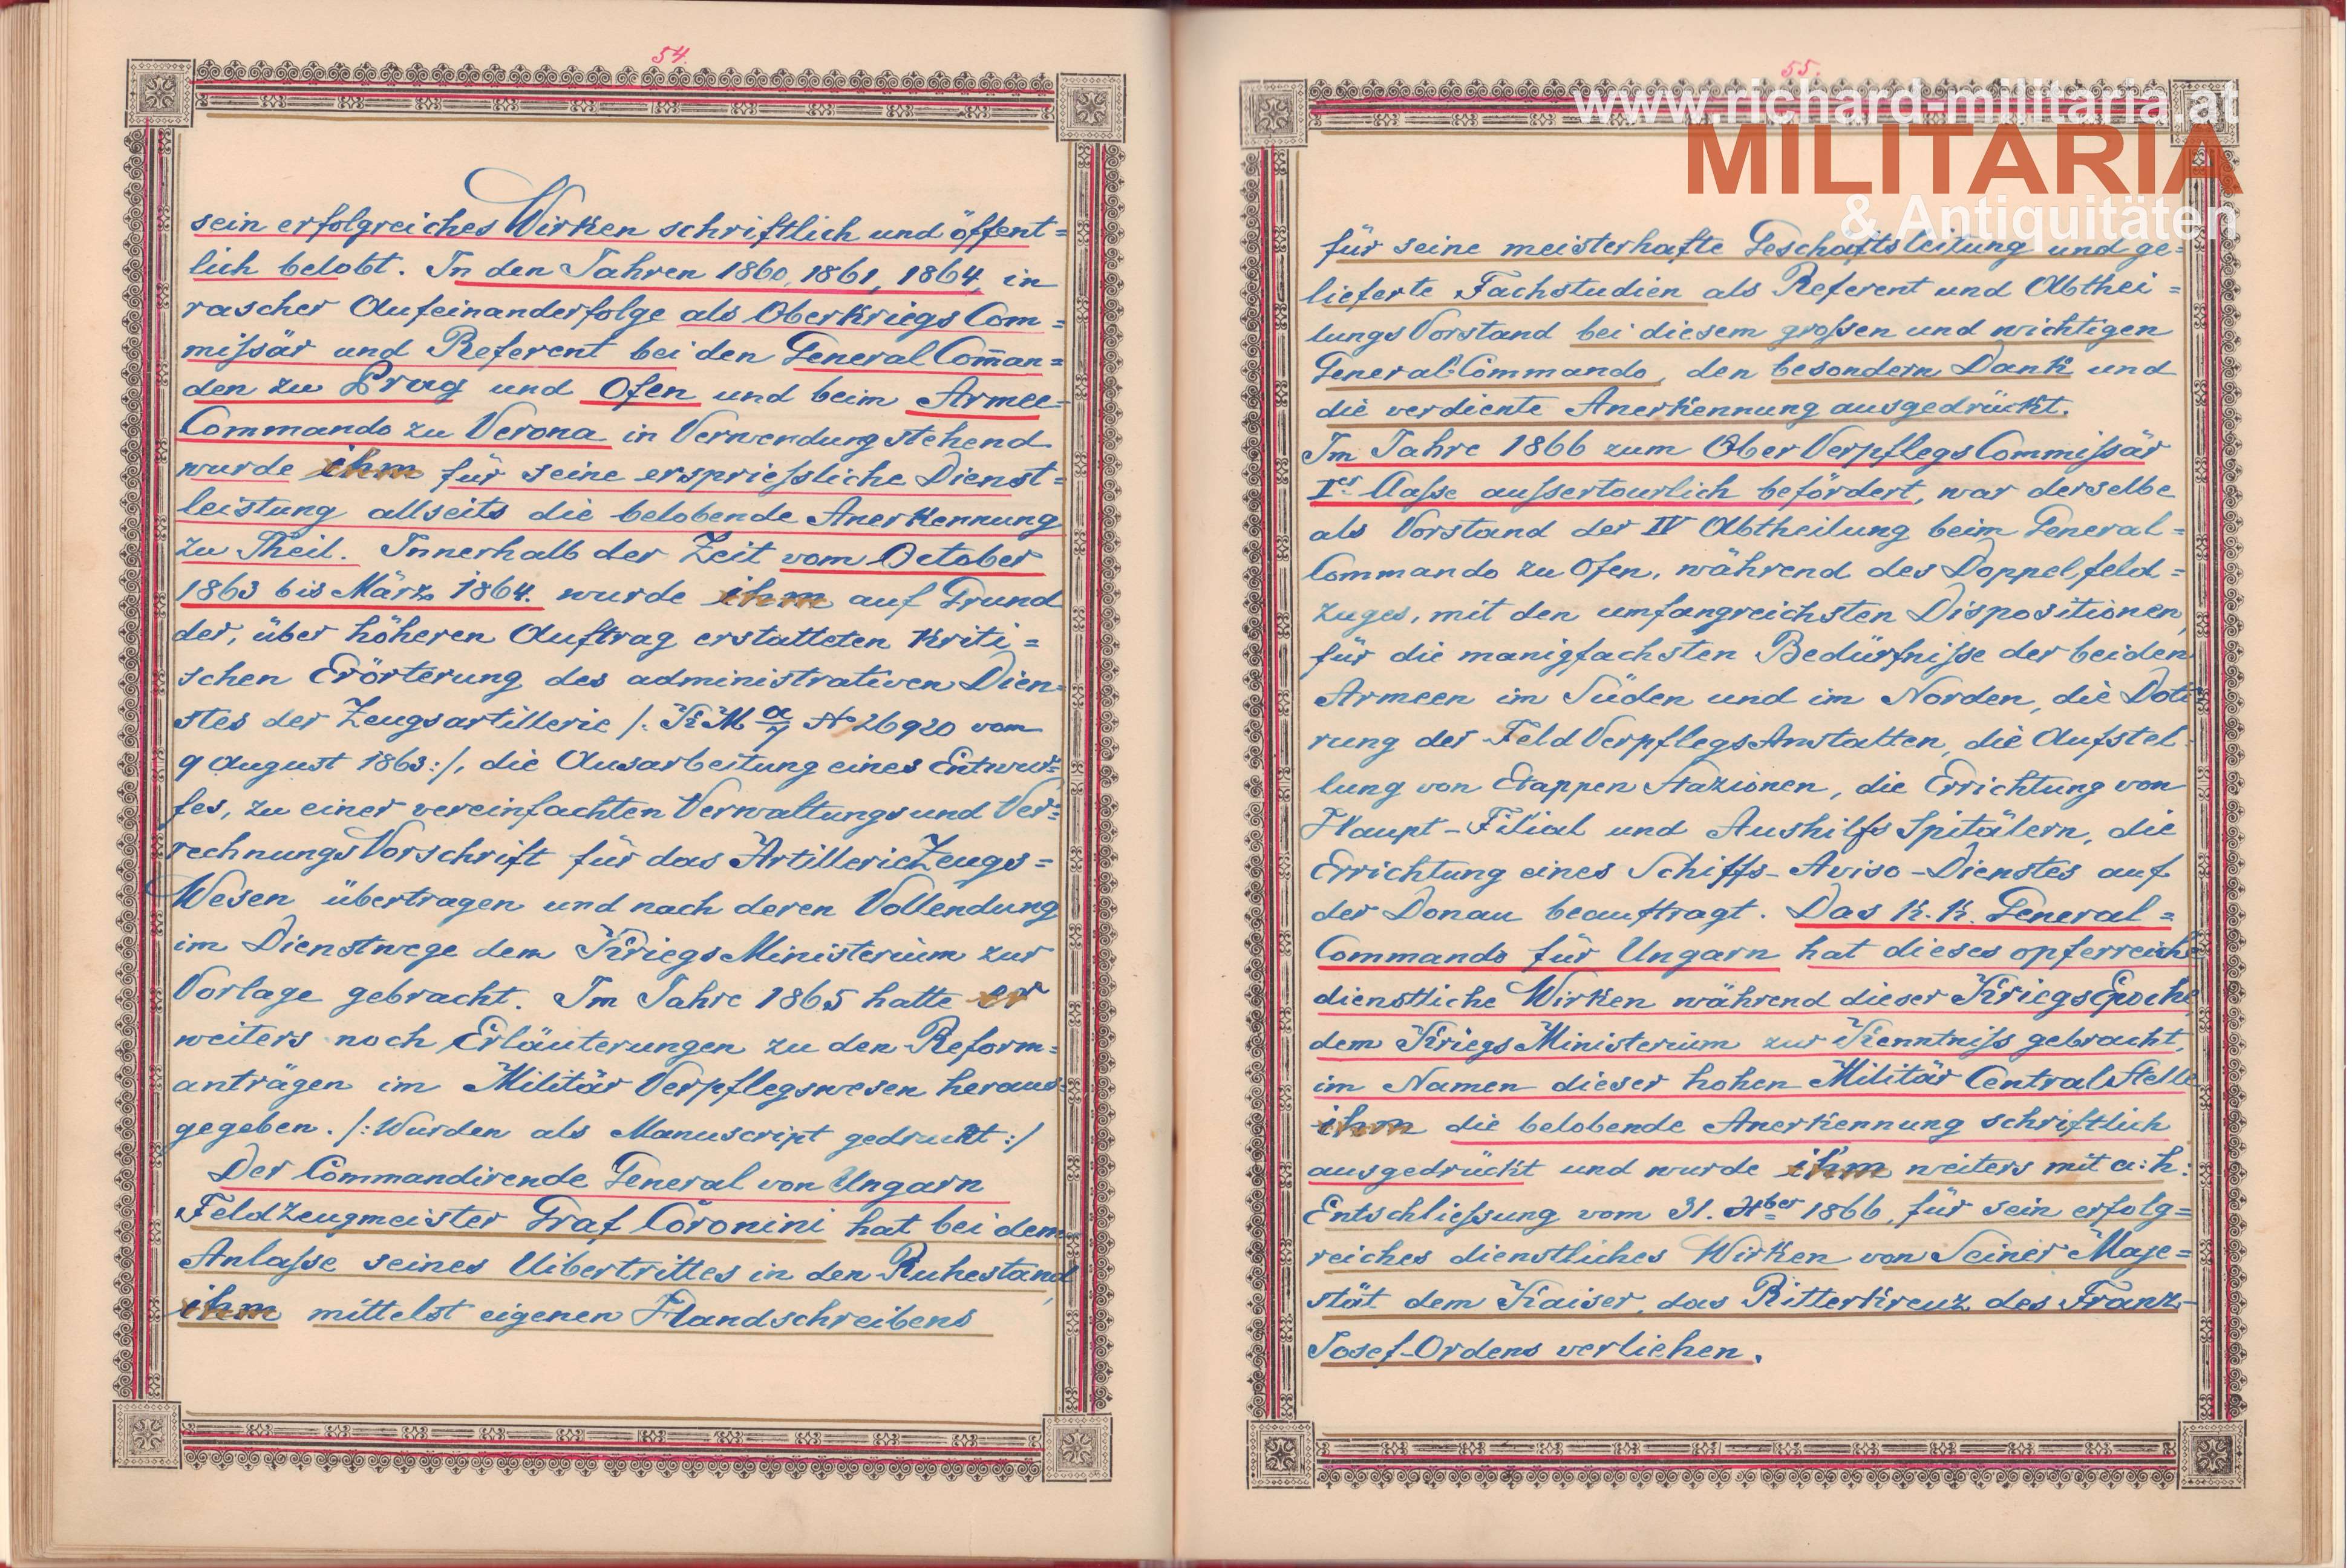 54.
sein erfolgreiches Wirken schriftlich und öffent=
lich belobt. In den Jahren 1860, 1861, 1864, in
rascher Aufeinanderfolge als OberKriegs Com=
mißär und Referent bei den General Com̄an=
den zu Prag und Ofen und beim Armee=
Commando zu Verona in Verwendung stehend
wurde ihm für seine ersprießliche Dienst=
leistung allseits die belobende Anerkennung
zu Theil. Innerhalb der Zeit vom October
1863 bis März 1864. wurde ihm auf Grund
der, über höheren Auftrag erstatteten Kriti=
schen Erörterung des administrativen Dien=
stes der Zeugsartillerie /: KM a/7 No 26920 vom
9 August 1863:/, die Ausarbeitung eines Entwur=
fes, zu einer vereinfachten Verwaltungs und Ver=
rechnungs Vorschrift für das Artillerie Zeugs=
Wesen übertragen und nach deren Vollendung
im Dienstwege dem Kriegs Ministerium zur
Vorlage gebracht. Im Jahre 1865 hatte er
weiters noch Erläuterungen zu den Reform=
anträgen im Militär Verpflegswesen heraus=
gegeben. /: Wurden als Manuscript gedruckt :/
Der Commandirende General von Ungarn
Feldzeugmeister Graf Coronini hat bei dem
Anlaße seines Uibertrittes in den Ruhestand,
ihm mittelst eigenen Handschreibens
55.
für seine meisterhafte Geschäftsleitung und ge=
lieferte Fachstudien als Referent und Abthei=
lungs Vorstand bei diesem großen und wichtigen
General-Commando, den besondern Dank und
die verdiente Anerkennung ausgedrückt.
Im Jahre 1866 zum Ober Verpflegs Commißär
Ier Claße außertourlich befördert, war derselbe
als Vorstand der IV Abtheilung beim General=
Commando zu Ofen, während des Doppelfeld=
zuges, mit den umfangreichsten Dispositionen,
für die manigfachsten Bedürfniße der beiden
Armeen im Süden und im Norden, die Doti
rung der Feld Verpflegs Anstalten, die Aufstel=
lung von Etappen Stazionen, die Errichtung von
Haupt-Filial und Aushilfs Spitälern, die
Errichtung eines Schiffs-Aviso-Dienstes auf
der Donau beauftragt. Das K.K. General=
Commando für Ungarn hat dieses opferreiche
dienstliche Wirken während dieser Kriegs Epoche,
dem Kriegs Ministerium zur Kenntniß gebracht,
im Namen dieser hohen Militär Central Stelle
ihm die belobende Anerkennung schriftlich
ausgedrückt und wurde ihm weiters mit a:h:
Entschließung vom 31. 1866, für sein erfolg=
reiches dienstliches Wirken von Seiner Maje=
stät dem Kaiser, das Ritterkreuz des Franz-
Josef-Ordens verliehen.
www.richard-militaria.at
MILITARIA
& Antiquitäten